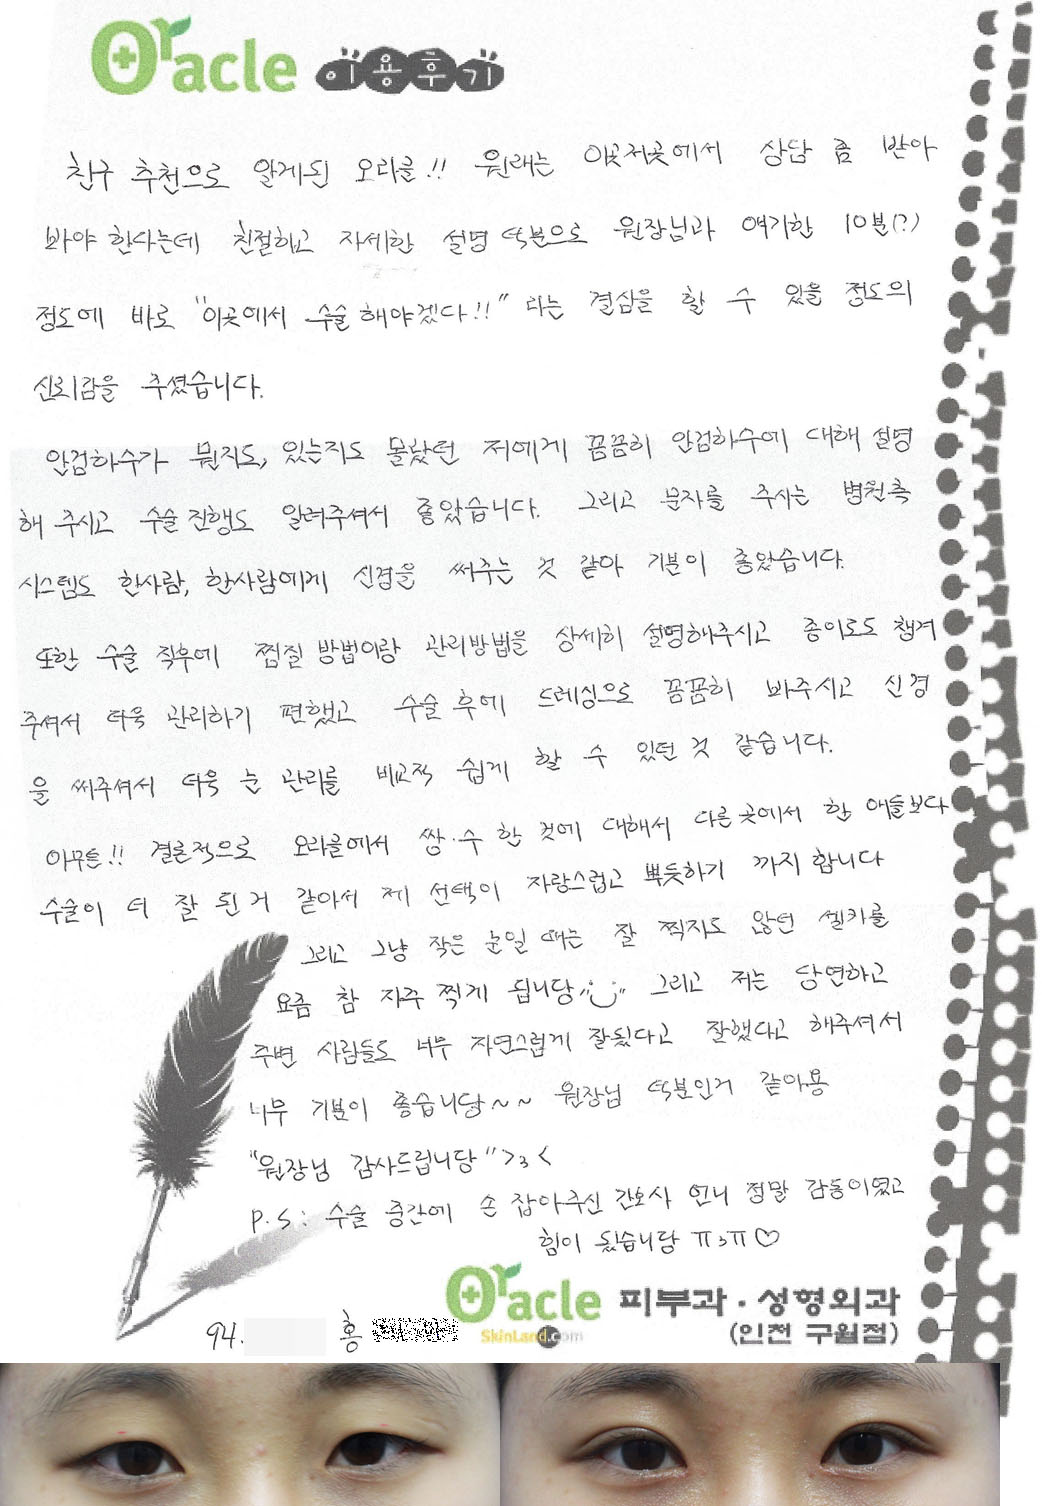 Oracle 이용후기
친구 추천으로 알게된 오라클!! 원래는 이곳저곳에서 상담 좀 받아
봐야 한다는데 친절하고 자세한 설명 덕분으로 원장님과 얘기한 10분(?)
정도에 바로 "이곳에서 수술해야겠다!!" 라는 결심을 할 수 있을 정도의
신뢰감을 주셨습니다.
안검하수가 뭔지도, 있는지도 몰랐던 저에게 꼼꼼히 안검하수에 대해 설명
해 주시고 수술 진행도 알려주셔서 좋았습니다. 그리고 문자를 주시는 병원측
시스템도 한사람, 한사람에게 신경을 써주는 것 같아 기분이 좋았습니다.
또한 수술 직후에 찜질 방법이랑 관리방법을 상세히 설명해주시고 종이로도 챙겨
주셔서 더욱 관리하기 편했고 수술 후에 드레싱으로 꼼꼼히 봐주시고 신경
을 써주셔서 더욱 눈 관리를 비교적 쉽게 할 수 있던 것 같습니다.
아무튼!! 결론적으로 오라클에서 쌍·수 한 것에 대해서 다른곳에서 한 애들보다
수술이 더 잘 된거 같아서 제 선택이 자랑스럽고 뿌듯하기 까지 합니다
그리고 그냥 작은 눈일 때는 잘 찍지도 않던 셀카를
요즘 참 자주 찍게 됩니당 그리고 저는 당연하고
주변 사람들도 너무 자연스럽게 잘됐다고 잘했다고 해주셔서
너무 기분이 좋습니당~~ 원장님 덕분인거 같아용
"원장님 감사드립니당" >3<
P.S: 수술 중간에 손 잡아주신 간호사 언니 정말 감동이였고
힘이 됐습니당 ㅠ3ㅠ♡
Oracle 피부과·성형외과
SkinLand.com (인천 구월점)
94. 홍